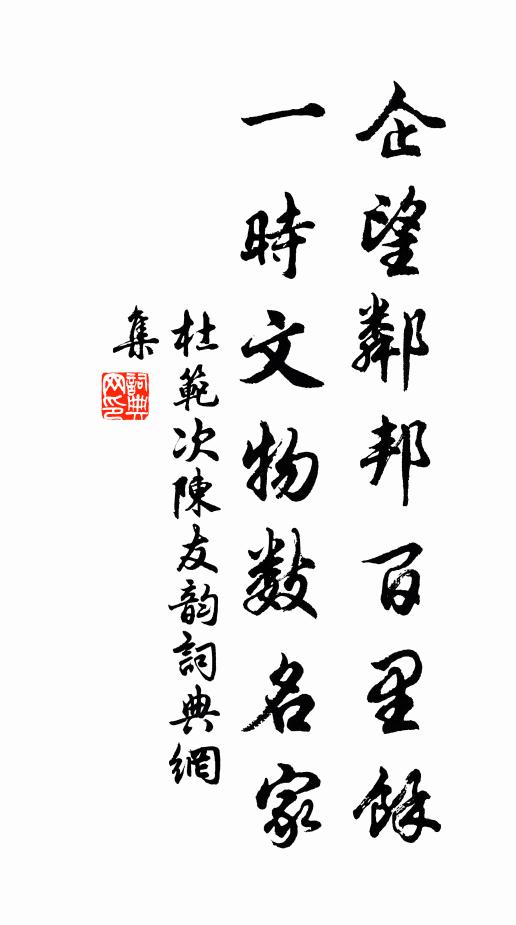 企望鄰邦百里餘
一時文物数名家
杜範次陳友韵詞典網
集
詞典
网印